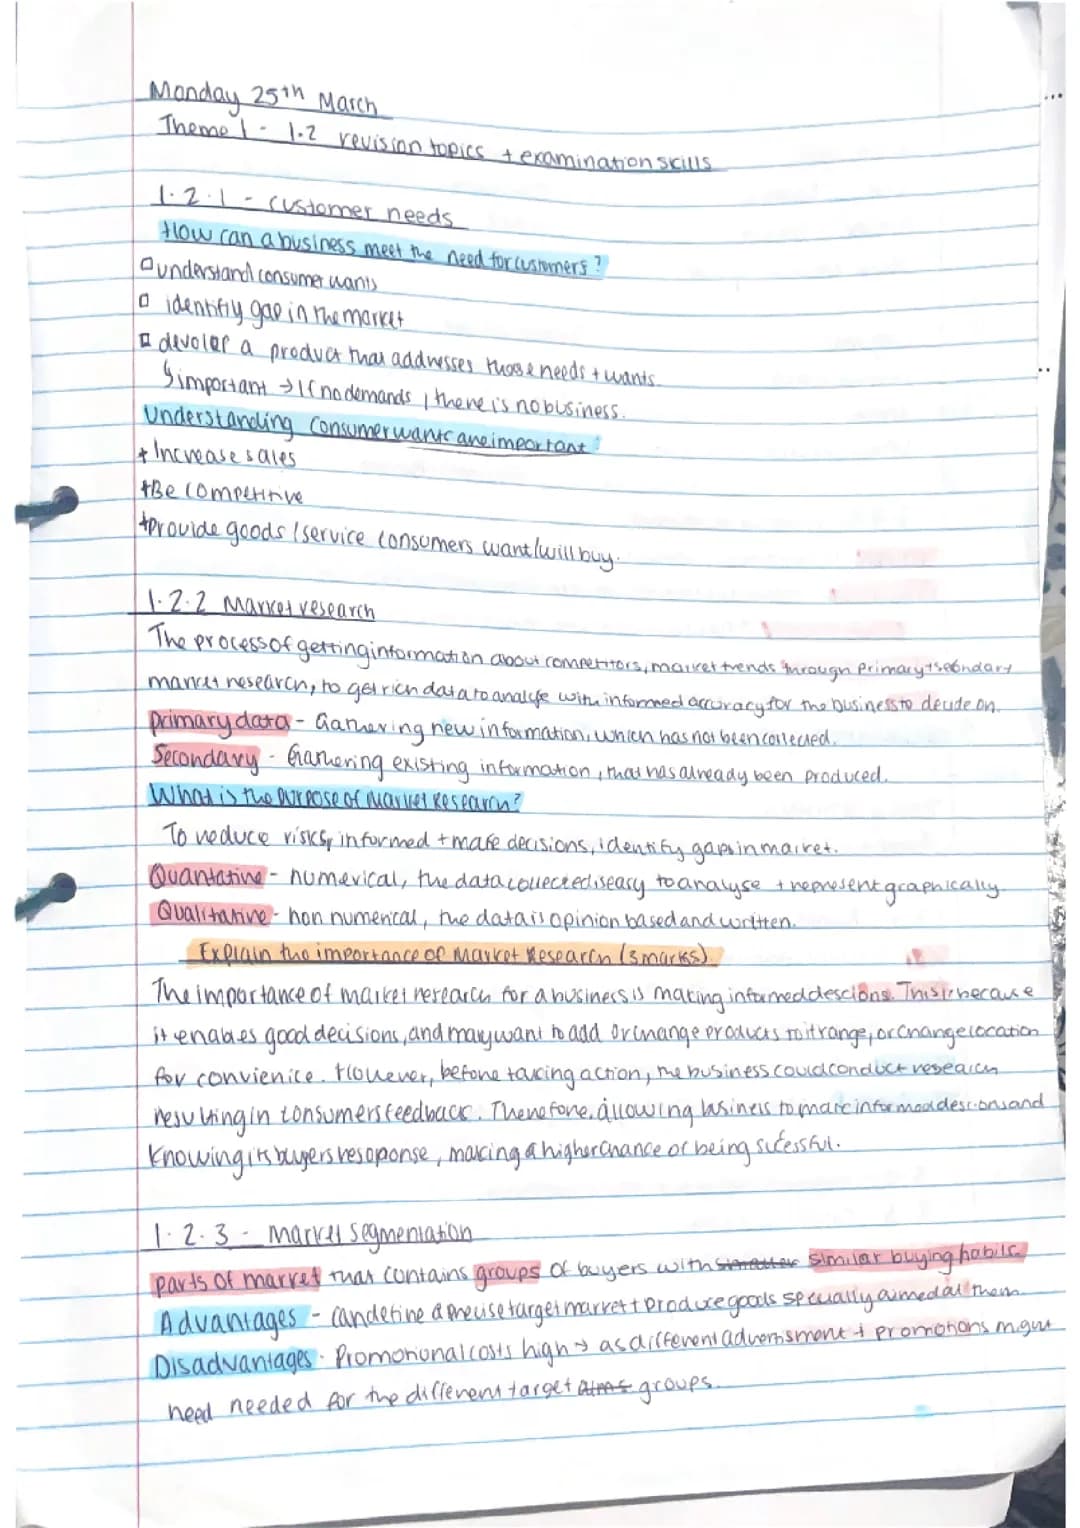 Monday 25th March
Theme 1 - 1.2 revision topics + examination skills
1.2.1 - customer needs
How can a business meet the need for customers?
understand consumer wants
identifiy gap in the market
devolep a product that addresses those needs + wants.
important → If no demands, there is no business.
Understanding consumer wants are important:
+ Increase sales
+Be competitive
+provide goods / service consumers want/will buy.
1.2.2 Market research
The process of getting information about competitors, market trends through primary + secondary
market research, to get rich data to analyse with informed accuracy for the business to decide on.
primary data - Gathering new information, which has not been collected.
Secondary - Gathering existing information, that has already been produced.
What is the purpose of Market Research?
To reduce risks, informed + make decisions, identify gaps in market.
Quantative - numerical, the data collected is easy to analyse + represent graphically
Qualitative - non numerical, the data is opinion based and written.
Explain the importance of Market Research (3 marks)
The importance of market research for a business is making informed descions. This is because
it enables good decisions, and may want to add or change products to it range, or change location
for convienice. However, before taking action, the business could conduct research
resulting in consumers feedback. Therefore, allowing business to make informed descions and
knowing its buyers resoponse, making a higher chance of being sucessful.
1.2.3 - Market Segmentation
parts of market that contains groups of buyers with similar buying habits.
Advantages - can define a precise target market + produce goods specually aimed at them.
Disadvantages - Promotional costs high → as different advertisment + promotions might
need needed for the different target aims groups.